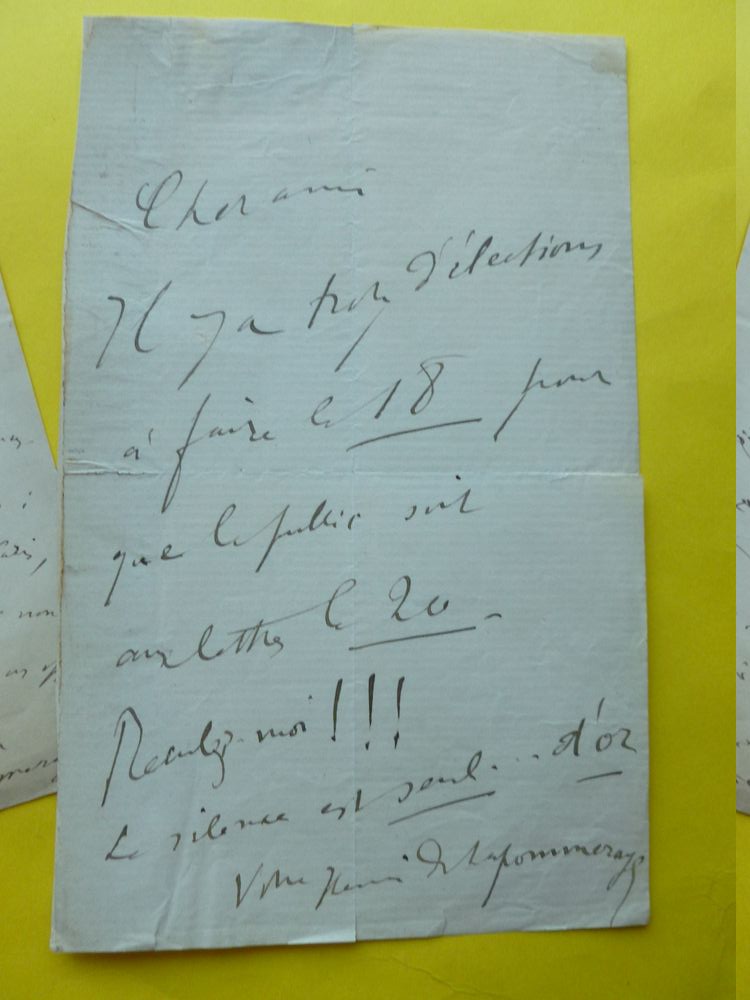 Cher ami
Il y a trop d'élections
à faire le 18 pour
que le public soit
aux lettres le 20 –
Reculez-moi !!!
Le silence est seul... d'or
Votre Henri de Lapommeraye